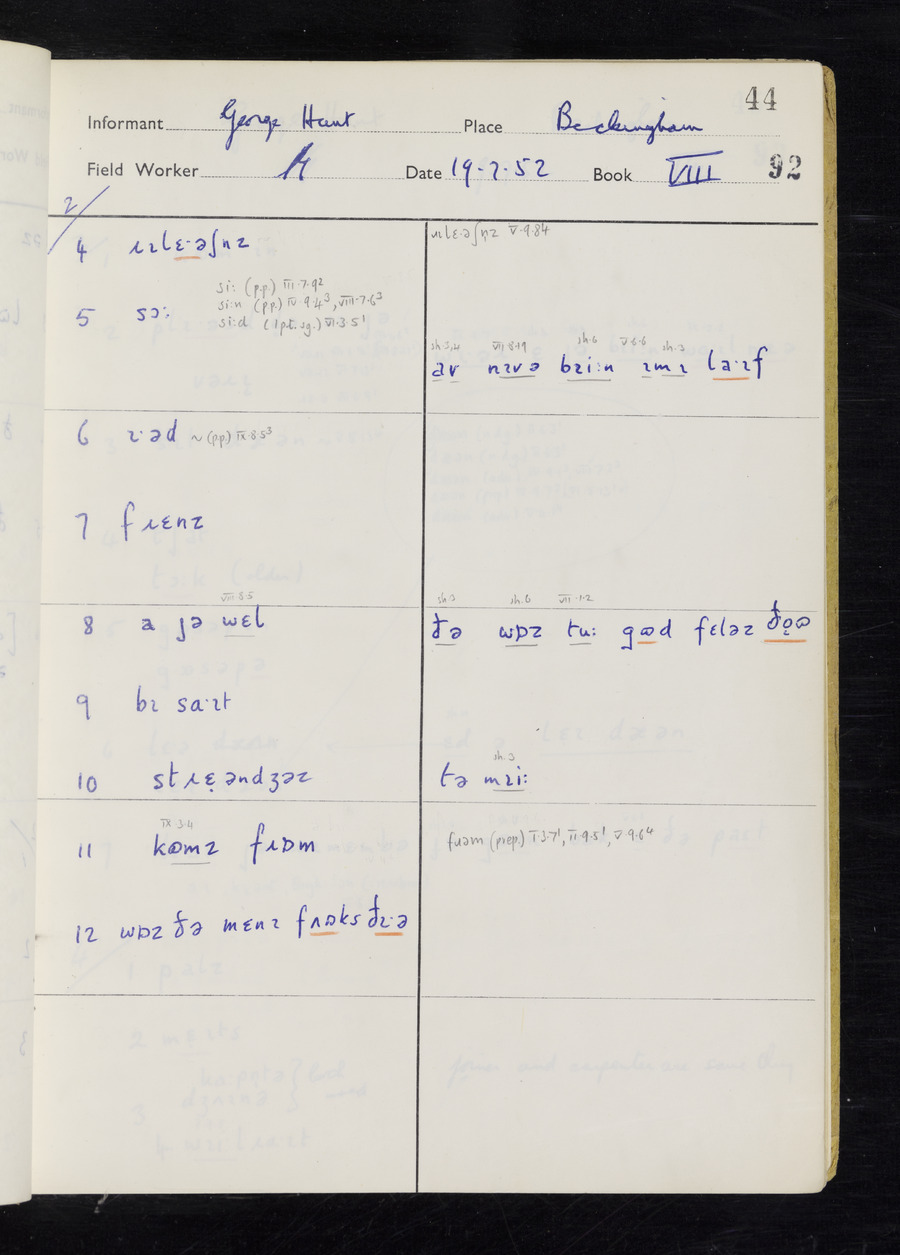 44
Informant George Hunt Place Beckingham
Field Worker Date 19·7·52 Book VIII 92
2/
4 ɹɪlɛ·əʃnz
ɹɪlɛ·əʃn̩z V·9·84
5 sɔ:
si: (p.p.) III·7·9²
si:n (p.p.) IV·9·4³, VIII·7·6³
si:d (1pt.sg.) VI·3·5¹
sh.3,4 VII·8·19 sh.6 V·6·6 sh.3
av nɪvə bɪi:n ɪmɪ la·ɪf
6 ɪ·əd ~ (p.p.) IX·8·5³
7 fɹɛnz
VIII·8·5
8 a jə wɛl
sh.3 sh.6 VII·1·2
ðə wɒz tu: gɷd fɛləz ðo̞ɷ
9 bɪ sa·ɪt
10 stɹɛ̣əndʒəz
sh.3
tə mɪi:
IX·3·4
11 kɷmz fɹɒm
fɹəm (prep.) I·3·7¹, II·9·5¹, V·9·6⁴
12 wɒz ðə mɛnɪ fʌɒks ðɪ·ə